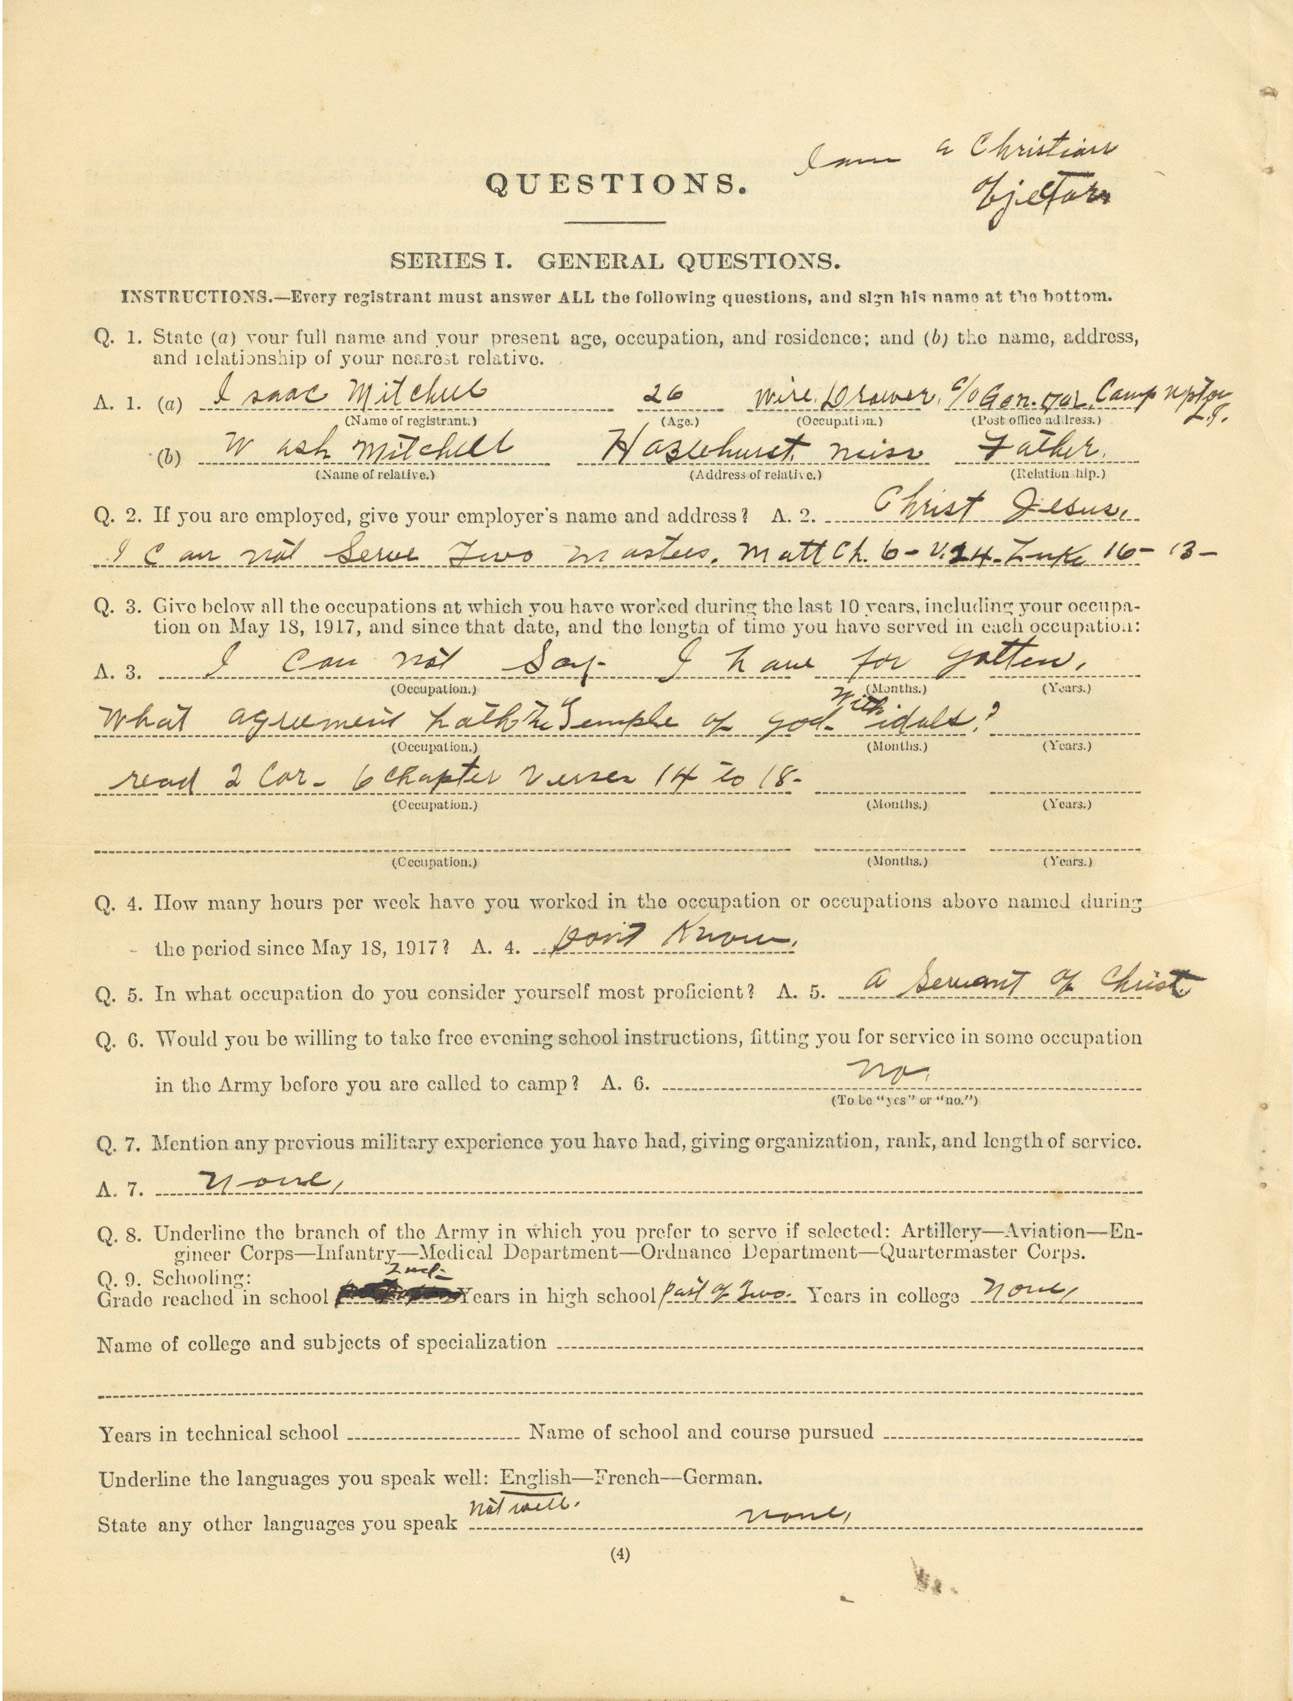 I am a Christian
Ojector
QUESTIONS.
SERIES I. GENERAL QUESTIONS.
INSTRUCTIONS.—Every registrant must answer ALL the following questions, and sign his name at the bottom.
Q. 1. State (a) your full name and your present age, occupation, and residence; and (b) the name, address,
and relationship of your nearest relative.
A. 1. (a) Isaac Mitchell 26 Wire Drawer, c/o Camp Upton
L.I.
(Name of registrant.) (Age.) (Occupation.) (Post office address.)
(b) Wash Mitchell Hazlehurst, Miss Father.
(Name of relative.) (Address of relative.) (Relationship.)
Q. 2. If you are employed, give your employer's name and address? A. 2. Christ Jesus.
I can not Serve Two masters. Matt Ch. 6-V.24-Luke 16-13-
Q. 3. Give below all the occupations at which you have worked during the last 10 years, including your occupa-
tion on May 18, 1917, and since that date, and the length of time you have served in each occupation:
A. 3. I can not Say- I have for gotten,
(Occupation.) (Months.) (Years.)
What agreement hath the Temple of god with idals?
(Occupation.) (Months.) (Years.)
read 2 Cor- 6 Chapter Verses 14 to 18-
(Occupation.) (Months.) (Years.)
(Occupation.) (Months.) (Years.)
Q. 4. How many hours per week have you worked in the occupation or occupations above named during
the period since May 18, 1917? A. 4. Don't Know.
Q. 5. In what occupation do you consider yourself most proficient? A. 5. A Servant of Christ
Q. 6. Would you be willing to take free evening school instructions, fitting you for service in some occupation
in the Army before you are called to camp? A. 6. no.
(To be "yes" or "no.")
Q. 7. Mention any previous military experience you have had, giving organization, rank, and length of service.
A. 7. none,
Q. 8. Underline the branch of the Army in which you prefer to serve if selected: Artillery—Aviation—En-
gineer Corps—Infantry—Medical Department—Ordnance Department—Quartermaster Corps.
Q. 9. Schooling:
2nd-
Grade reached in school Years in high school part of Two. Years in college none,
Name of college and subjects of specialization
Years in technical school Name of school and course pursued
Underline the languages you speak well: English—French—German.
not well.
State any other languages you speak none,
(4)